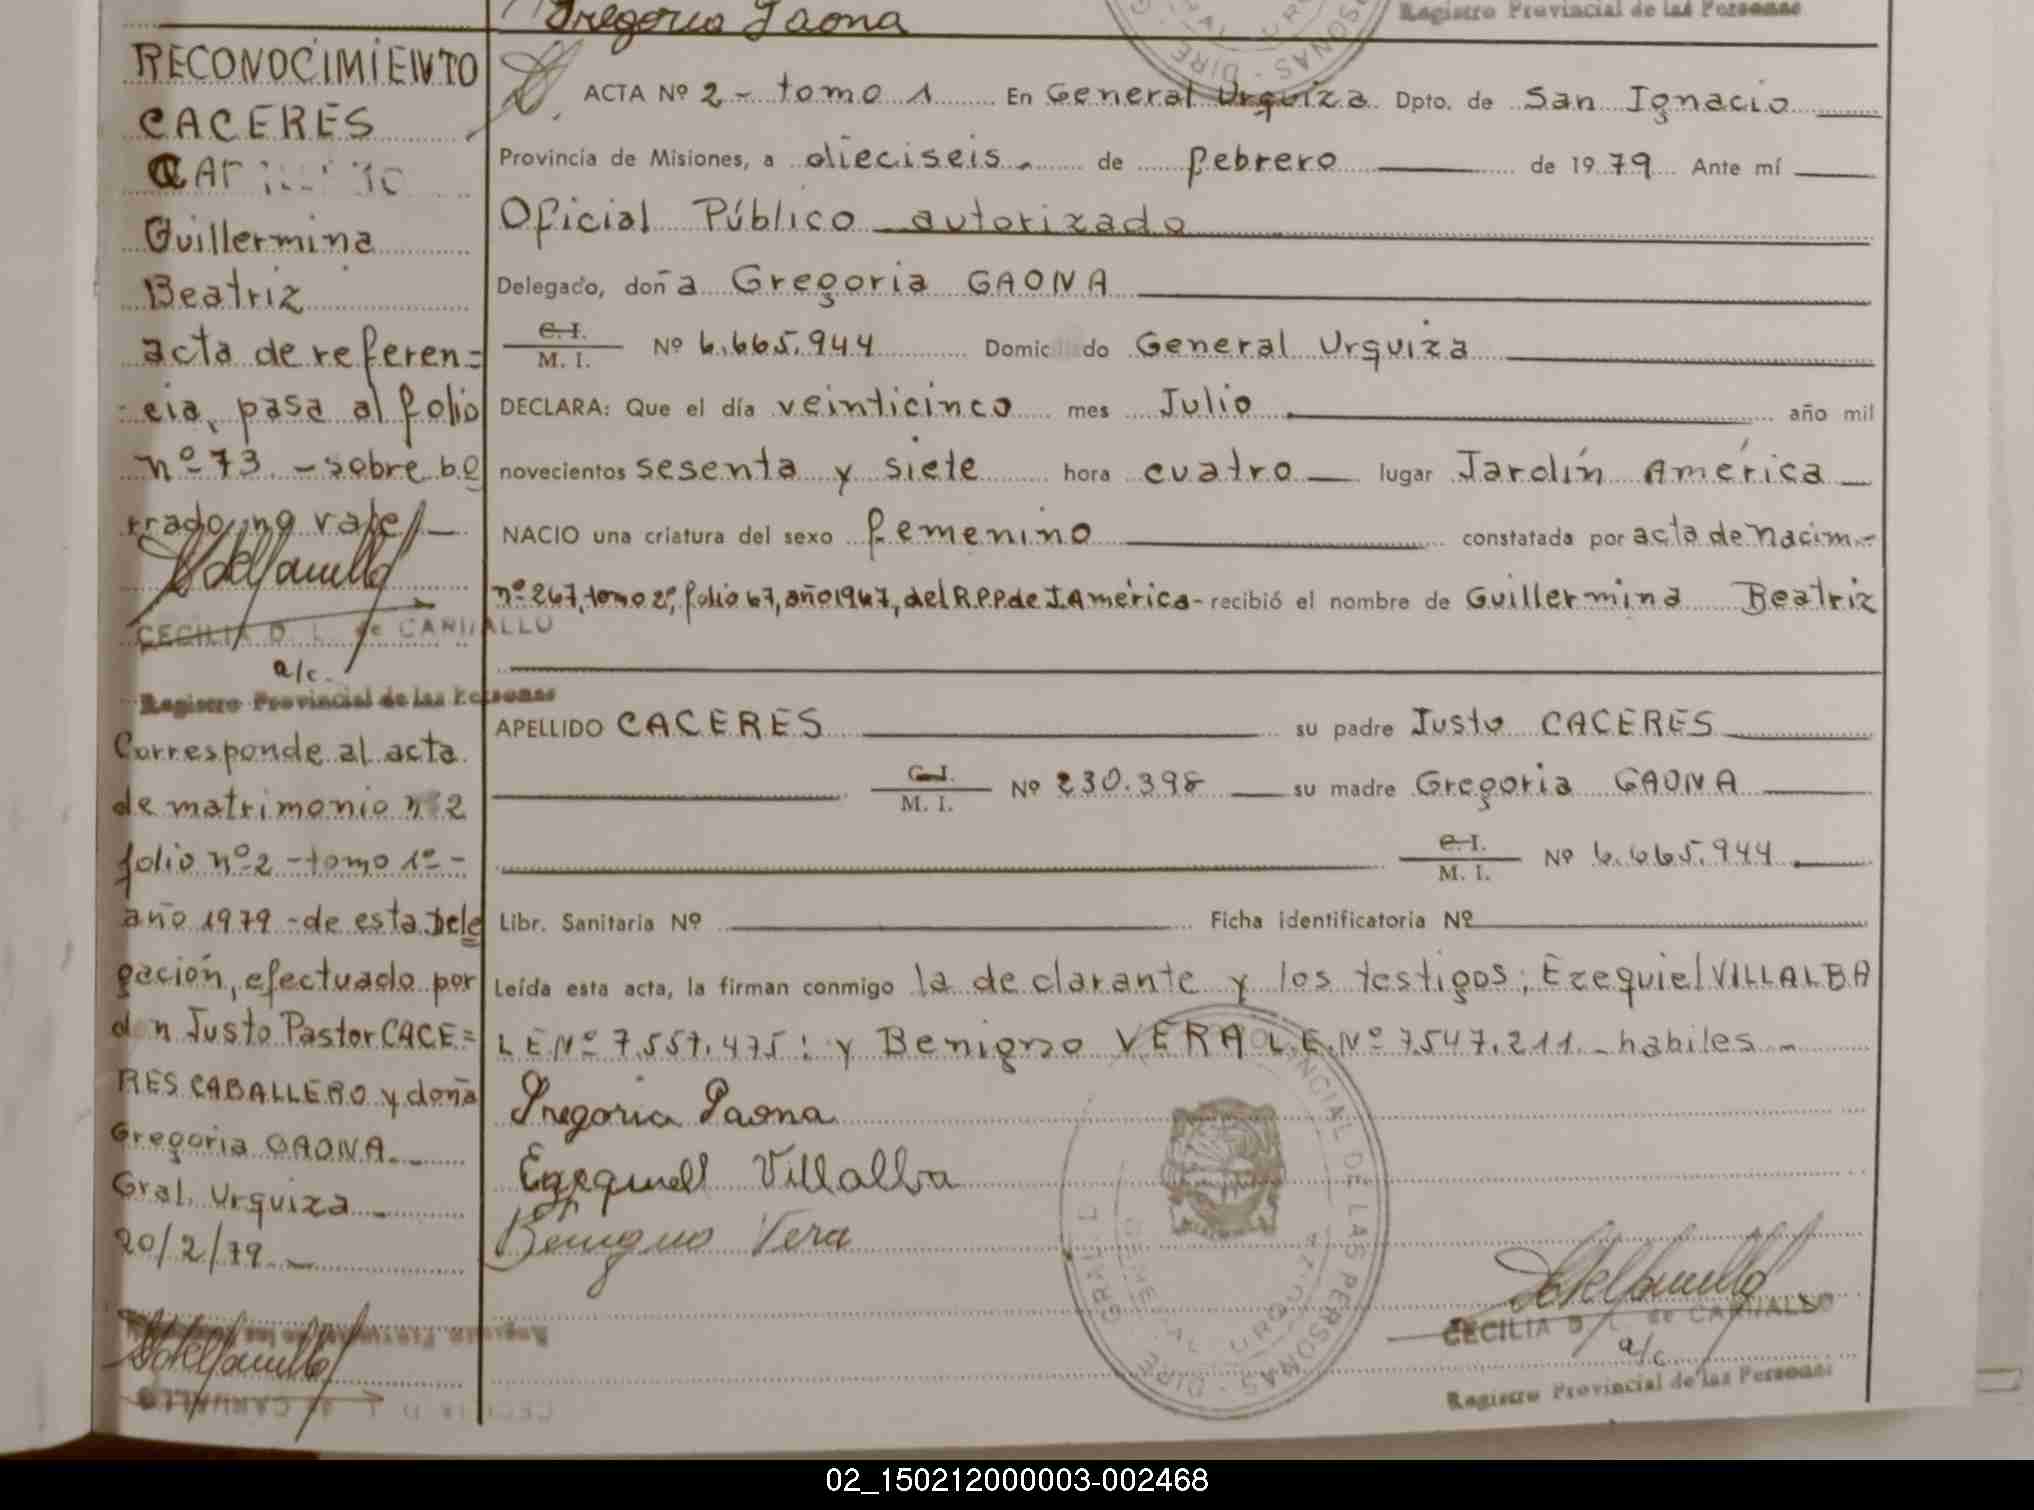 Gregoria Gaona
Registro Provincial de las Personas
RECONOCIMIENTO
CACERES
Guillermina
Beatriz
acta de referen=
cia, pasa al folio
nº 73 - sobre bo
rrado, no vale/-
CECILIA D. L. de CARVALLO
a/c.
Registro Provincial de las Personas
Corresponde al acta
de matrimonio nº 2
folio nº 2 - tomo 1º -
año 1979 - de esta Dele
gación, efectuado por
don Justo Pastor CACE=
RES CABALLERO y doña
Gregoria GAONA. -
Gral. Urquiza -
20/2/79. -
ACTA Nº 2 - tomo 1 En General Urquiza Dpto. de San Ignacio
Provincia de Misiones, a dieciseis - de febrero de 1979 Ante mí
Oficial Público autorizado
Delegado, doña Gregoria GAONA
C. I. / M. I. Nº 6.665.944 Domiciliado General Urquiza
DECLARA: Que el día veinticinco mes Julio año mil
novecientos sesenta y siete hora cuatro lugar Jardín América
NACIO una criatura del sexo femenino constatada por acta de nacim.-
nº 267, tomo 2º, folio 67, año 1967, del R.P.P. de J. América - recibió el nombre de Guillermina Beatriz
APELLIDO CACERES su padre Justo CACERES
C. I. / M. I. Nº 230.398 su madre Gregoria GAONA
C. I. / M. I. Nº 6.665.944
Libr. Sanitaria Nº Ficha identificatoria Nº
Leída esta acta, la firman conmigo la declarante y los testigos; Ezequiel VILLALBA
L E Nº 7.557.475; y Benigno VERA L.E. Nº 7.547.211 - habiles -
Gregoria Gaona
Ezequiel Villalba
Benigno Vera
CECILIA D. L. de CARVALLO
a/c
Registro Provincial de las Personas
02_150212000003-002468